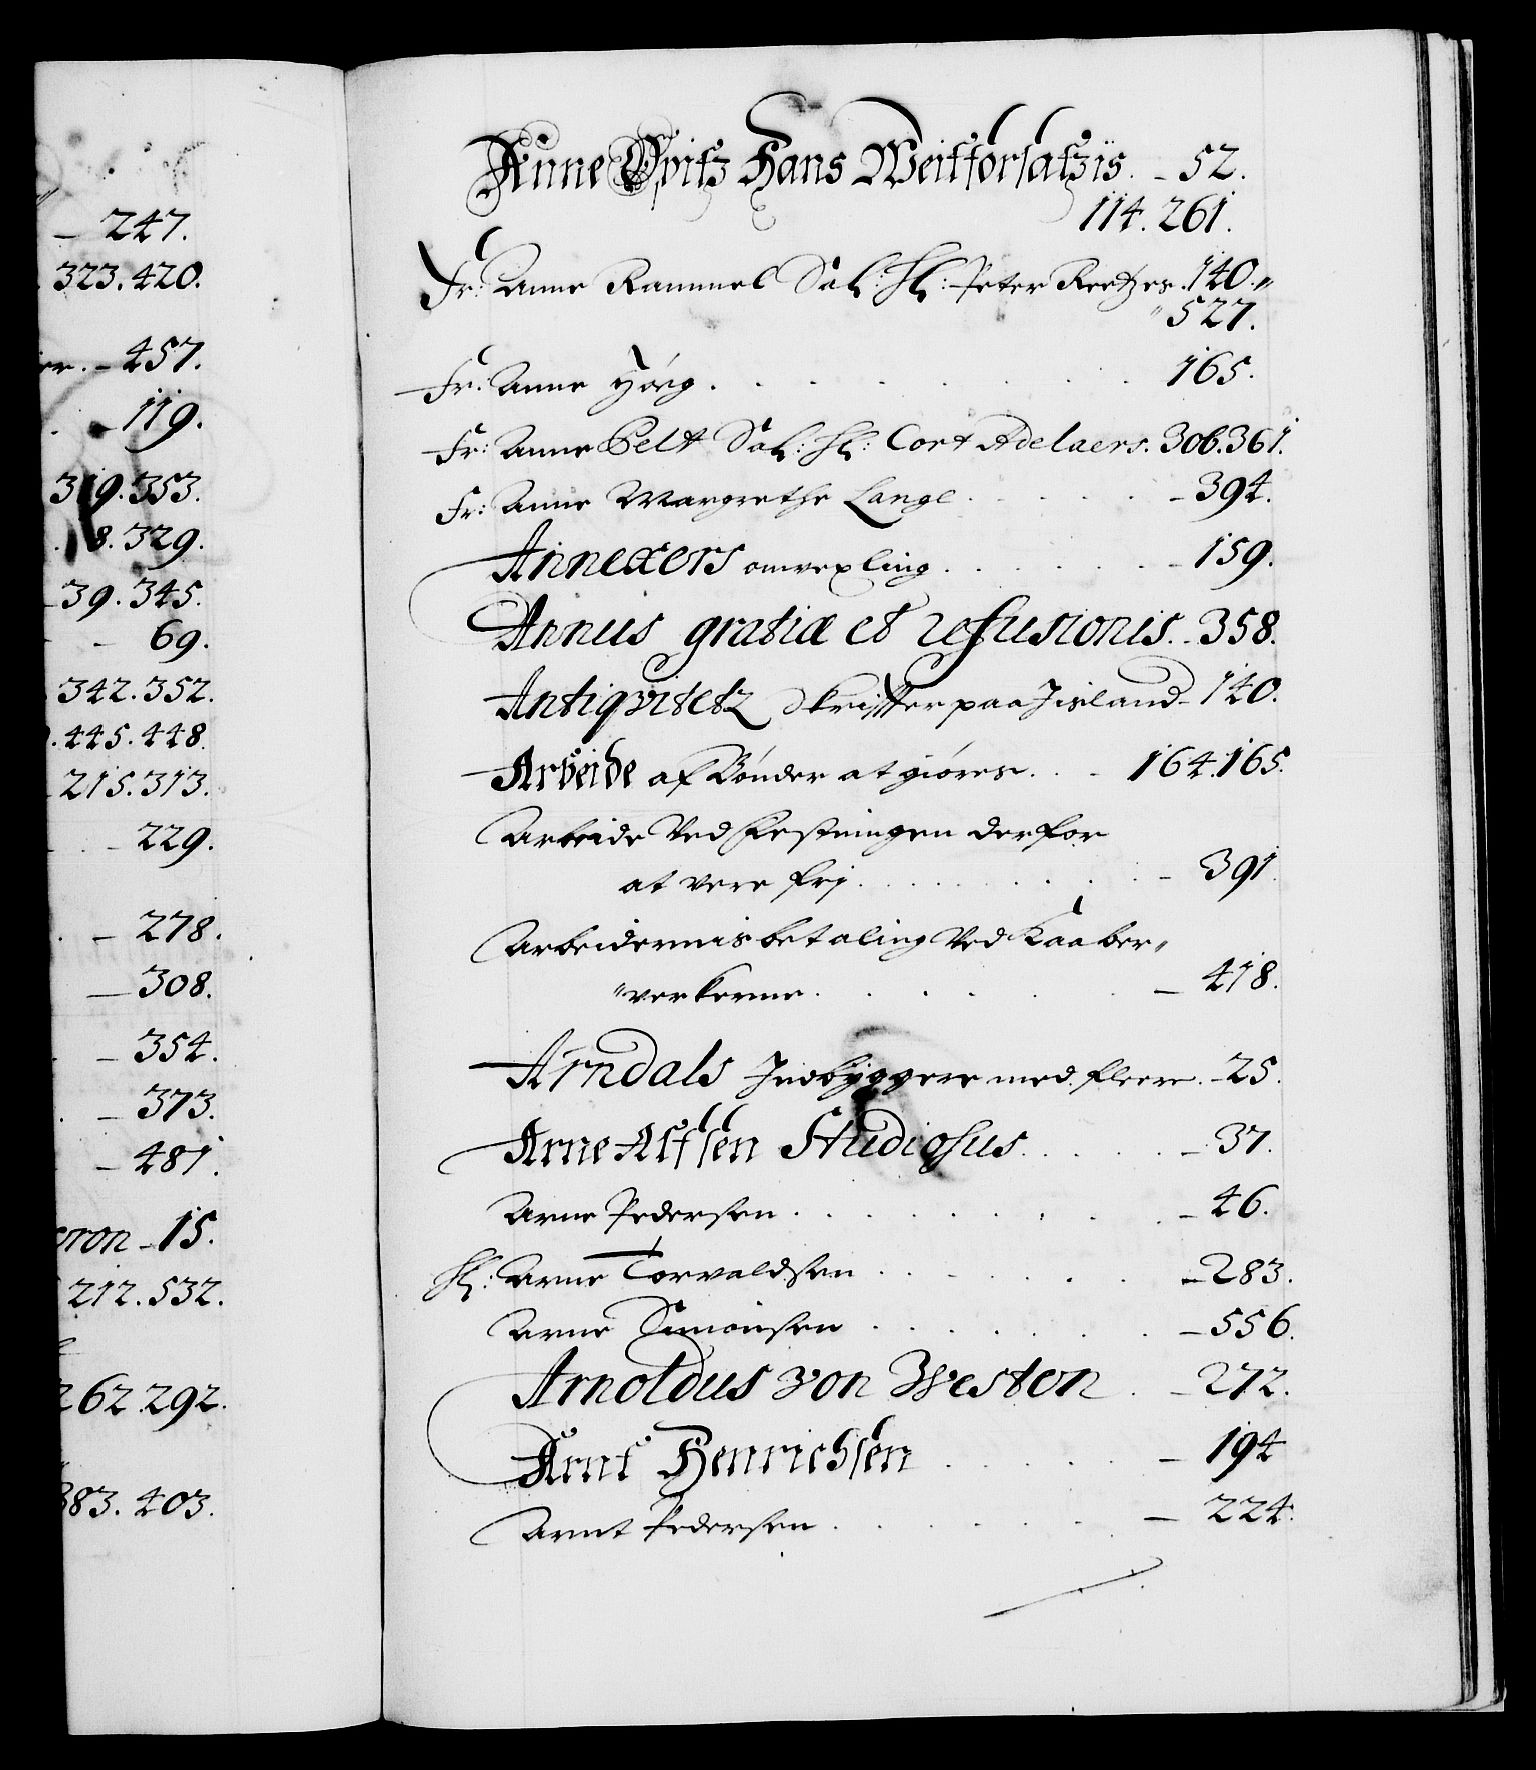 – 247.
323. 420.
er. – 457.
– 119.
319. 353.
8. 329.
39. 345.
– 69.
342. 352.
. 445. 448.
215. 313.
– 229.
– 278.
– 308.
– 354.
– 373.
– 481.
eron – 15.
212. 532.
262. 292.
383. 403.
Anne Opitz Hans Weitforsatziis. – 52.
114. 261.
Fr: Anne Rammel Sal: Hl: Peter Reetzes. 140.„
„527.
Fr. Anne Høeg . . . 165.
Fr: Anne Pelt Sal: Hl: Cort Adelaers. 306. 361.
Fr: Anne Margrethe Lange . . – 394.
Annexers omvexling . . . – 159.
Annus gratiæ et refusionis. – 358.
Antiqvitetz Skrifter paa Jisland – 140.
Arbeide af Bønder at giøres. . – 164. 165.
Arbeide Ved Festningen derfor
at vere frj. . . . – 391.
Arbeidernis betaling Ved Kaaber„
„verkerne. . . . – 418.
Arndals Indbyggere med fleere. – 25.
Arne Alfsen Studiosus. . . – 37.
Arne Pedersen. . . . – 46.
Hl: Arne Torvaldsen . . . – 283.
Arne Simonsen . . . – 556.
Arnoldus von Westen . – 272.
Arnt Henrichsen . . . – 194
Arnt Pedersen. . . . – 224.